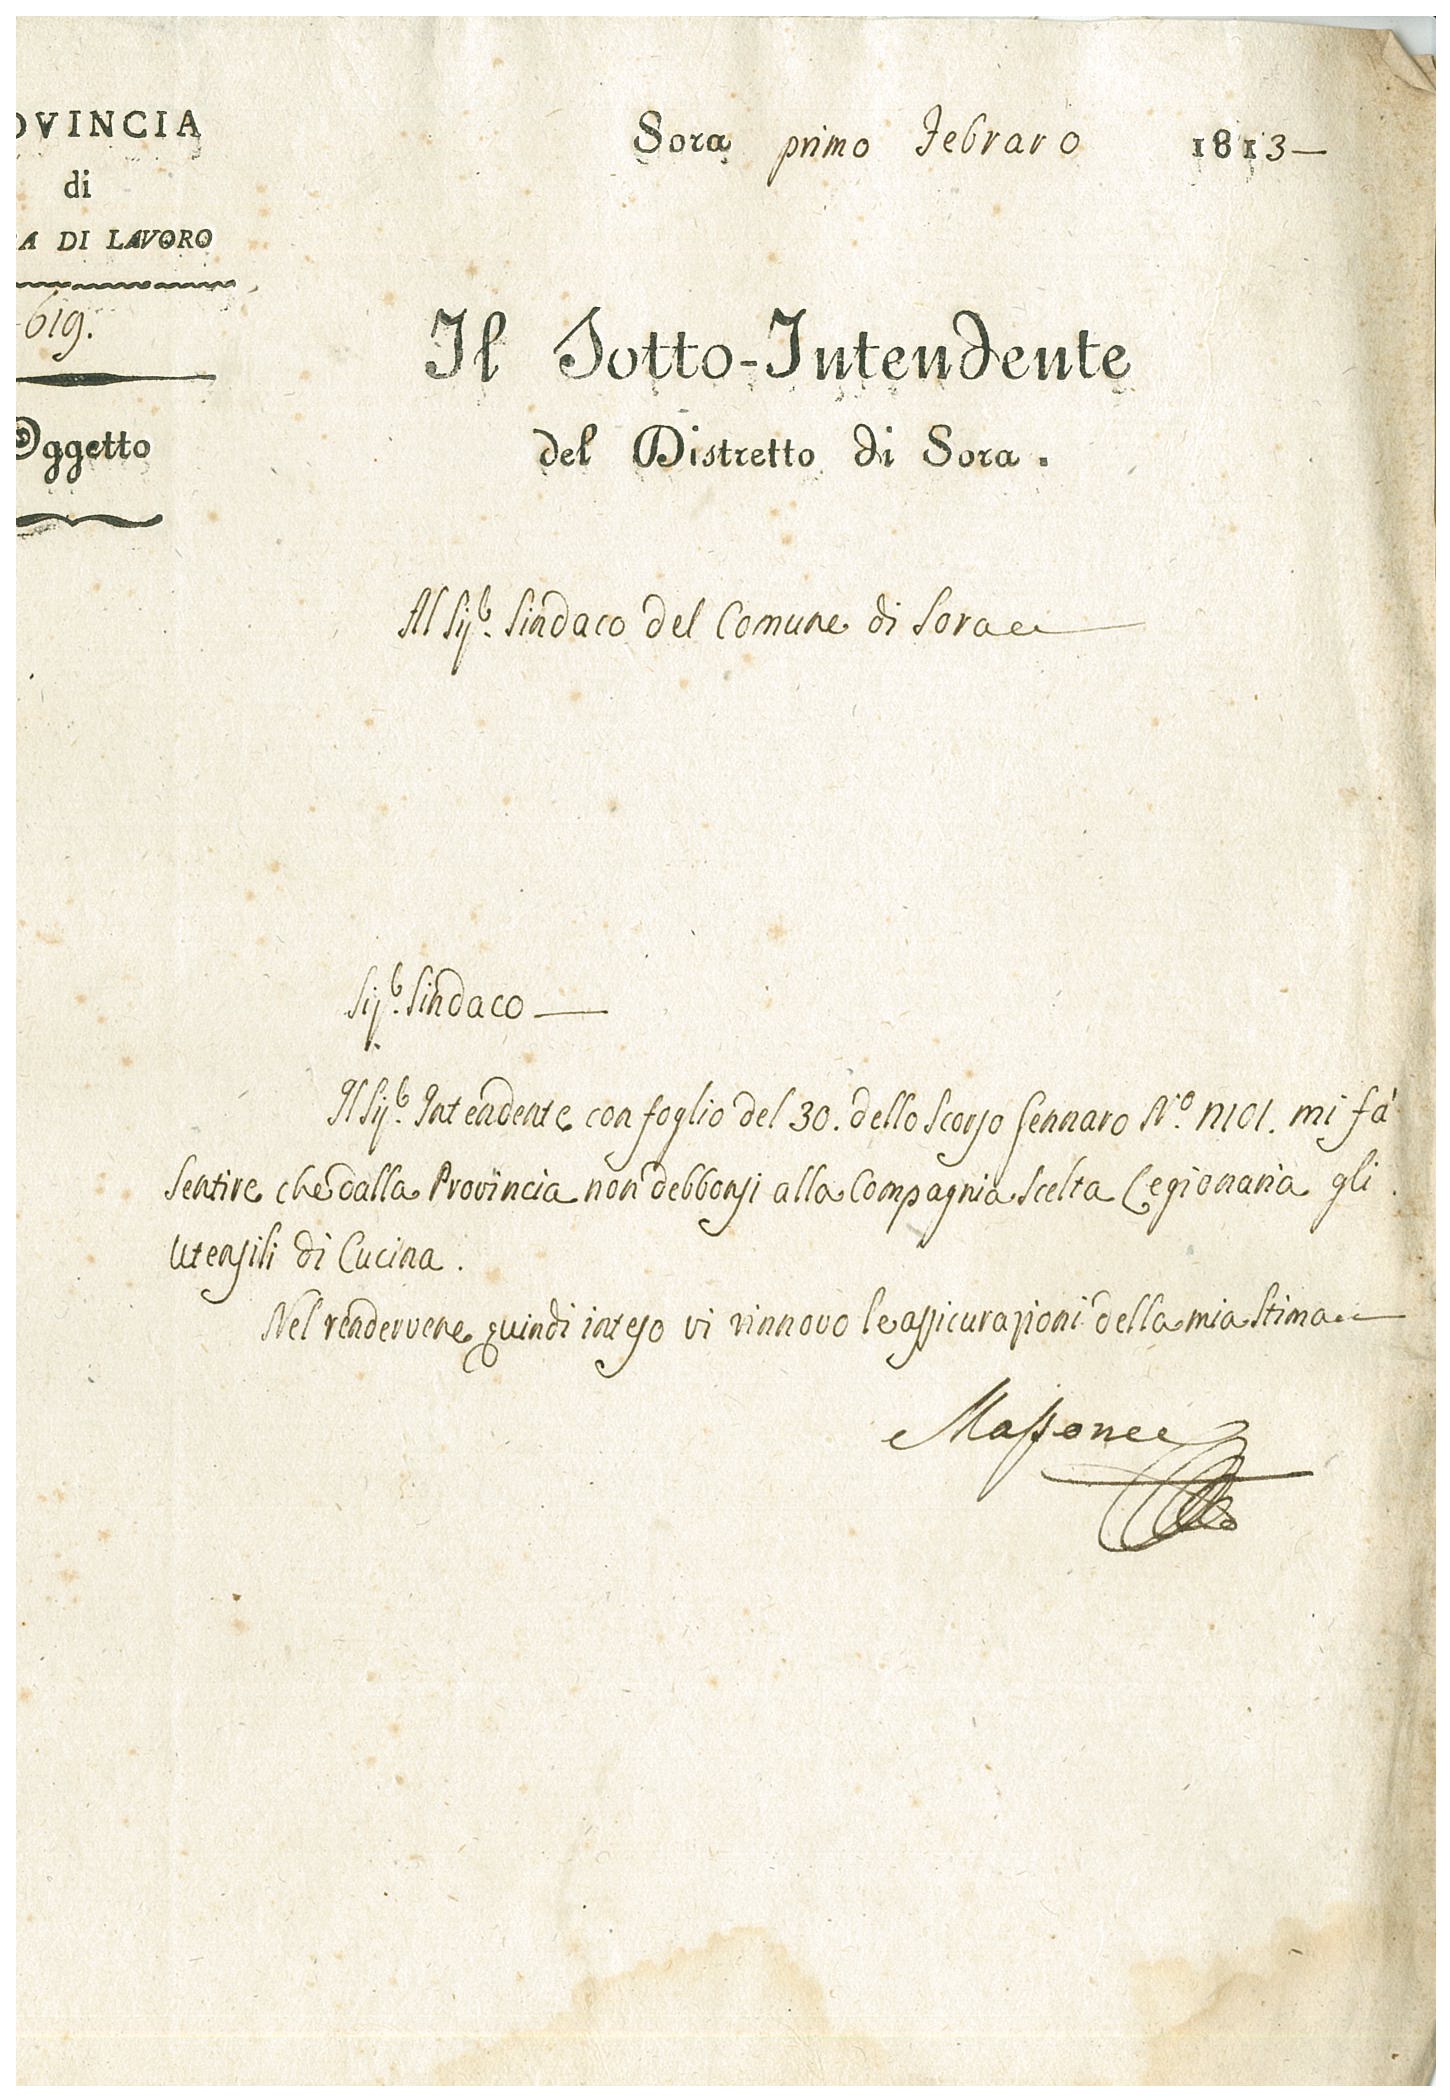 OVINCIA
di
A DI LAVORO
619.
Oggetto
Sora primo Febraro 1813
Il Sotto-Intendente
del Distretto di Sora.
Al Sigr. Sindaco del Comune di Sora
Sigr. Sindaco
Il Sigr. Intendente con foglio del 30. dello scorso Gennaro N.o 11101. mi fà
sentire che dalla Provincia non debbonsi alla Compagnia scelta Legionaria gli
utensili di Cucina.
Nel rendervene quindi inteso vi rinnovo le assicurazioni della mia stima
Massone